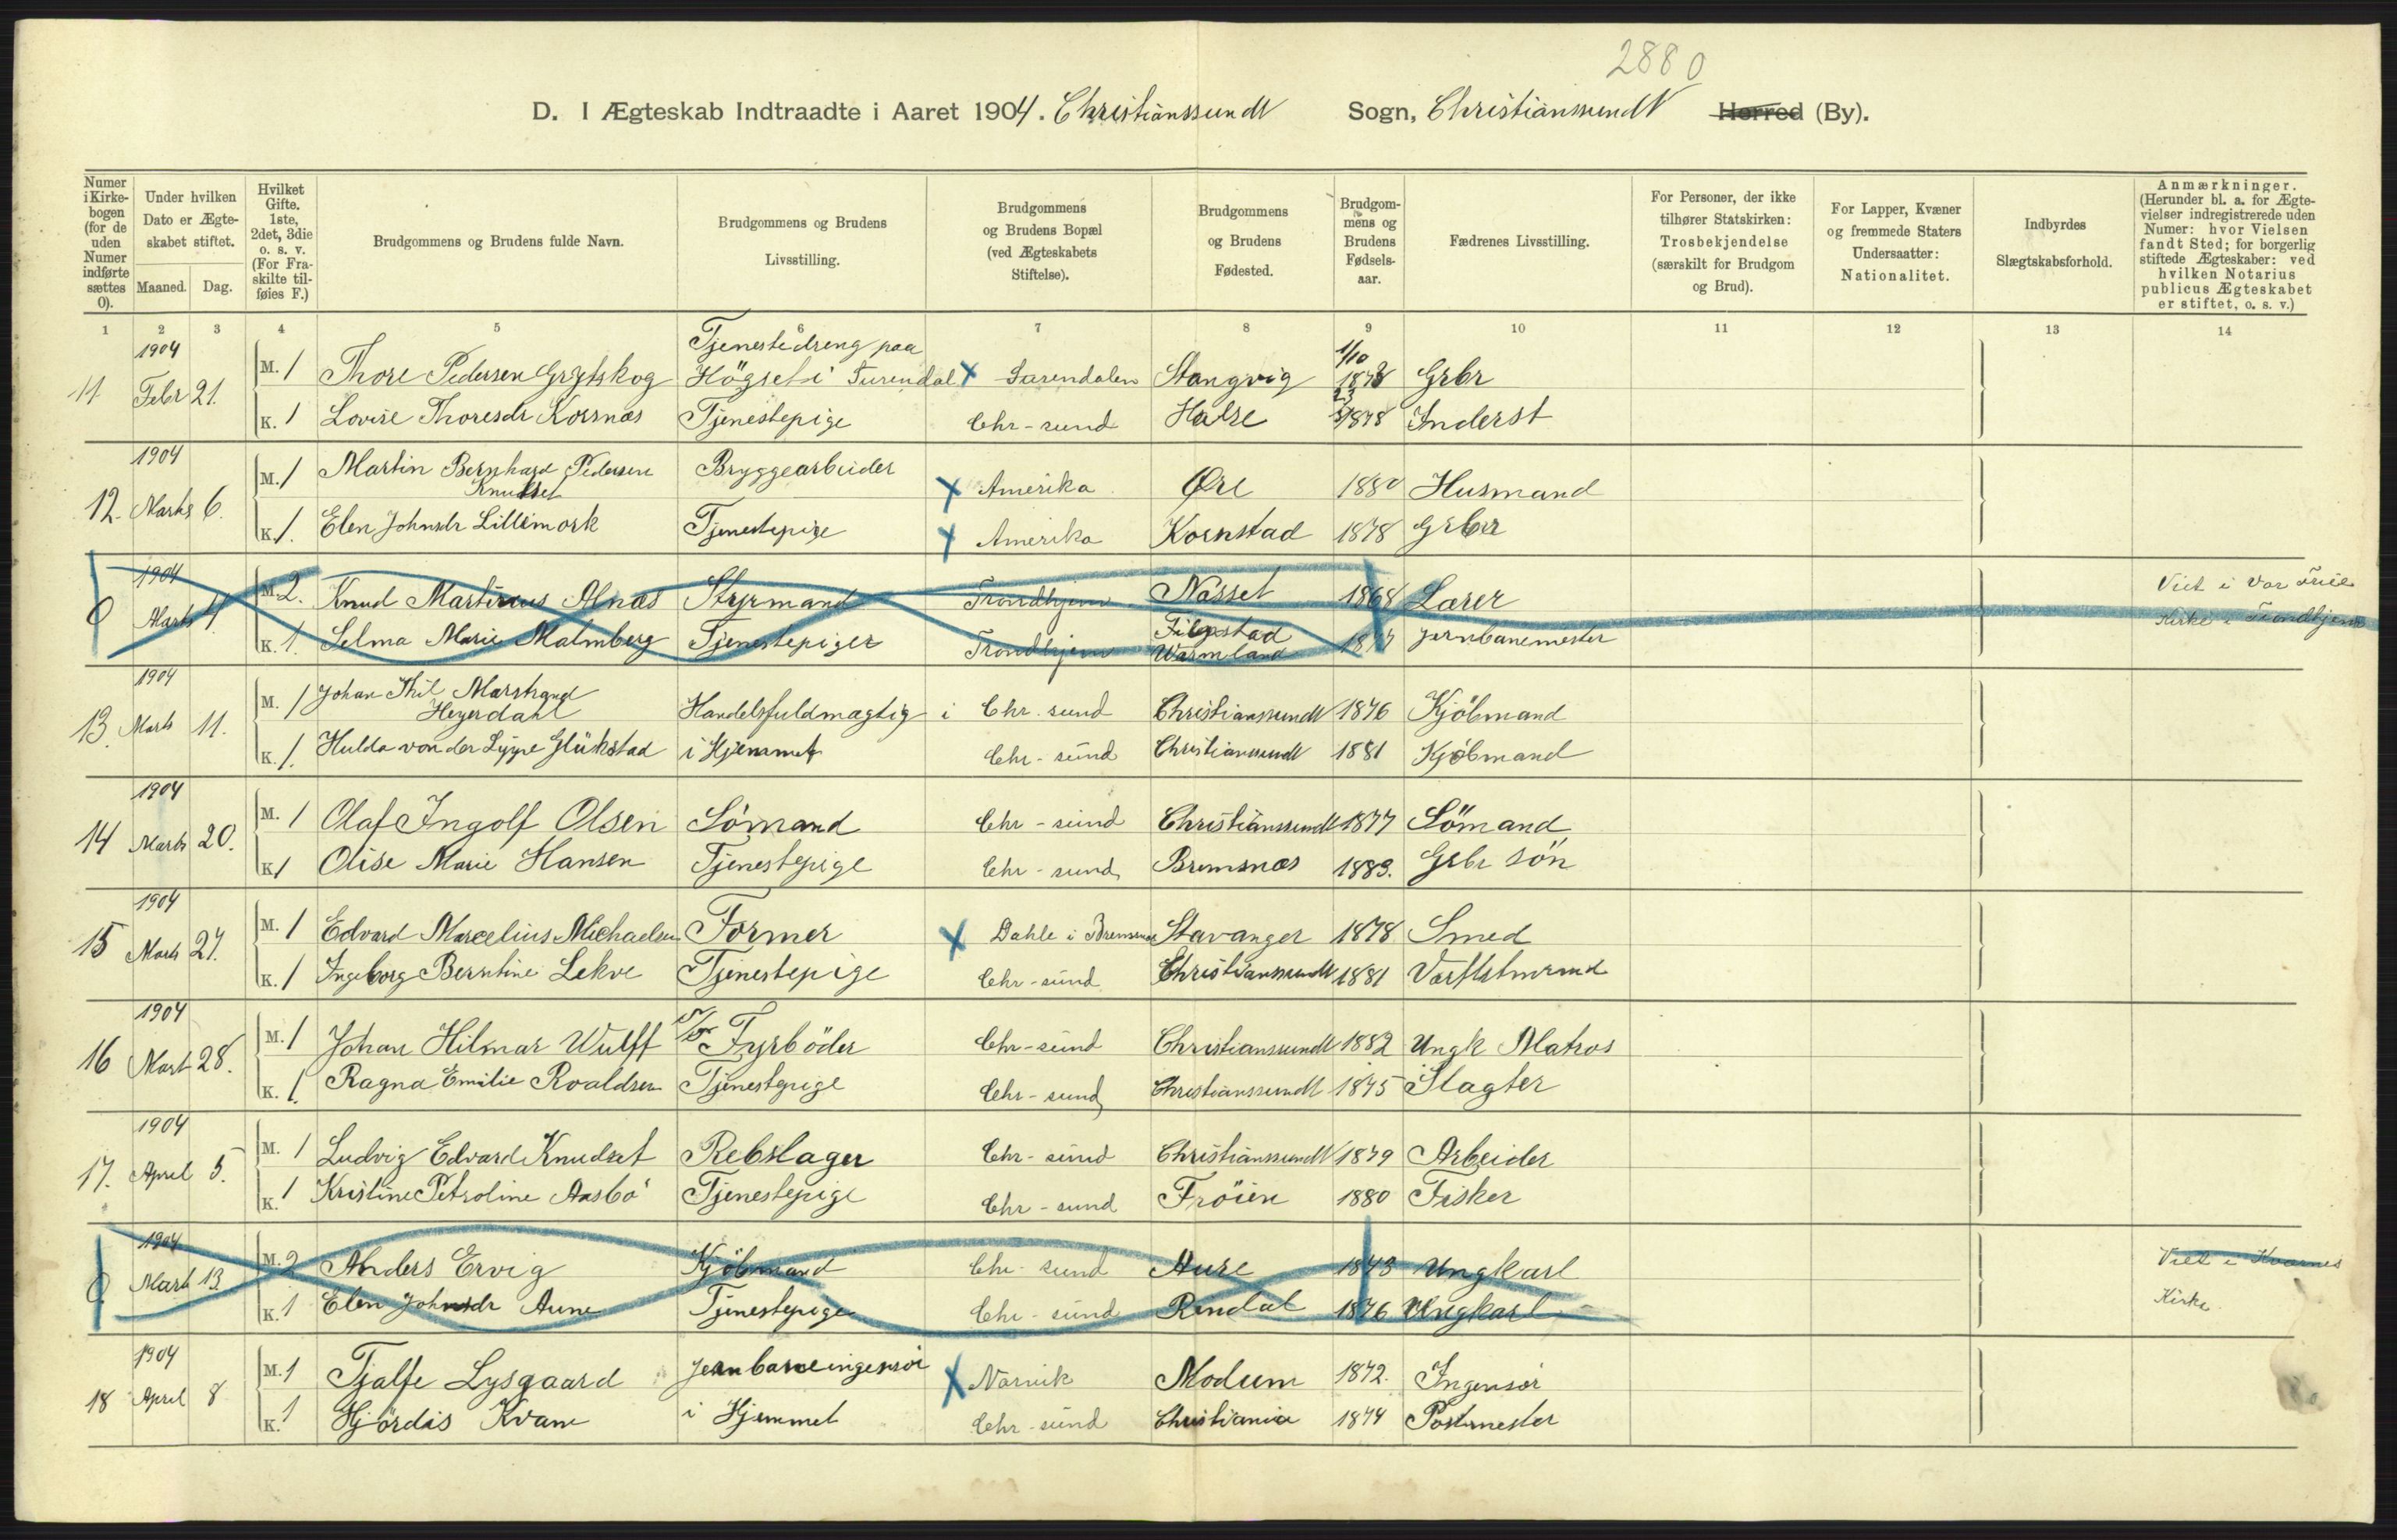 2880
D. I Ægteskab Indtraadte i Aaret 1904. Christianssundt Sogn, Christianssundt Herred (By).
Numer i Kirke-bogen (for de uden Numer indførte sættes 0).
Under hvilken Dato er Ægte-skabet stiftet.
Maaned. Dag.
Hvilket Gifte. 1ste, 2det, 3die o. s. v. (For Fra-skilte til-føies F.)
Brudgommens og Brudens fulde Navn.
Brudgommens og Brudens Livsstilling.
Brudgommens og Brudens Bopæl (ved Ægteskabets Stiftelse).
Brudgommens og Brudens Fødested.
Brudgom-mens og Brudens Fødsels-aar.
Fædrenes Livsstilling.
For Personer, der ikke tilhører Statskirken: Trosbekjendelse (særskilt for Brudgom og Brud).
For Lapper, Kvæner og fremmede Staters Undersaatter: Nationalitet.
Indbyrdes Slægtskabsforhold.
Anmærkninger. (Herunder bl. a. for Ægte-vielser indregistrerede uden Numer: hvor Vielsen fandt Sted; for borgerlig stiftede Ægteskaber: ved hvilken Notarius publicus Ægteskabet er stiftet, o. s. v.)
1 2 3 4 5 6 7 8 9 10 11 12 13 14
1904 Tjenestedreng paa 1/10
11 Febr 21. M. 1 Thore Pedersen Grytskog Högset i Surendal X Surendalen Stangvig 1878 Grbr
K. 1 Lovise Thoresdr Korsnæs Tjenestepige Chr-sund Halse 1878 Inderst
1904
12. Marts 6. M. 1 Martin Bernhard Pedersen Knudset Bryggearbeider X Amerika Øre 1880 Husmand
K. 1. Elen Johnsdr Lillemork Tjenestepige X Amerika Kornstad 1878 Grbr
1904
0 Marts 1. M. 2. Knud Martinus Alnæs Styrmand Trondhjem Nösset 1868 Lærer Viet i Vor Frue
K. 1. Selma Marie Malmberg Tjenestepiger Trondhjem Filipstad Warmland 1877 Jernbanemester Kirke i Trondhjem
1904
13. Marts 11. M. 1 Johan Thil Marstrand Heyerdahl Handelsfuldmægtig i Chr. sund Christianssundt 1876 Kjöbmand
K. 1. Hulda von der Lippe Glükstad i Hjemmet Chr-sund Christianssundt 1881 Kjöbmand
1904
14 Marts 20. M. 1 Olaf Ingolf Olsen Sömand Chr-sund Christianssundt 1877 Sömand
K 1 Olise Marie Hansen Tjenestepige Chr-sund Bremsnæs 1883. Grbr sön
1904
15 Marts 27. M. 1 Edvard Marcelius Michaelsen Former X Dahle i Bremsnæs Stavanger 1878 Smed
K. 1 Ingeborg Berntine Lekve Tjenestepige Chr-sund Christianssundt 1881
1904
16 Mart 28. M. 1 Johan Hilmar Wulff Fyrböder Chr-sund Christianssundt 1882 Ungk Matros
K. 1. Ragna Emilie Roaldsen Tjenestepige Chr-sund Christianssundt 1875 Slagter
1904
17. April 5. M. 1 Ludvig Edvard Knudset Rebslager Chr-sund Christianssundt 1879 Arbeider
K. 1 Kristine Petroline Aasbö Tjenestepige Chr-sund Fröien 1880 Fisker
1904
0 Mart 13 M. 2 Anders Ervig Kjöbmand Chr-sund Aure 1843 Ungkarl Viet i Kvarnes
K. 1 Elen Johnsdr Aune Tjenestepige Chr-sund Rendal 1876 Ungkarl Kirke.
1904
18 April 8 M. 1 Tjalfe Lysgaard Jernbaneingeniör X Narvik Modum 1872. Ingeniör
K. 1 Hjördis Kvam i Hjemmet Chr-sund Christiania 1874 Postmester